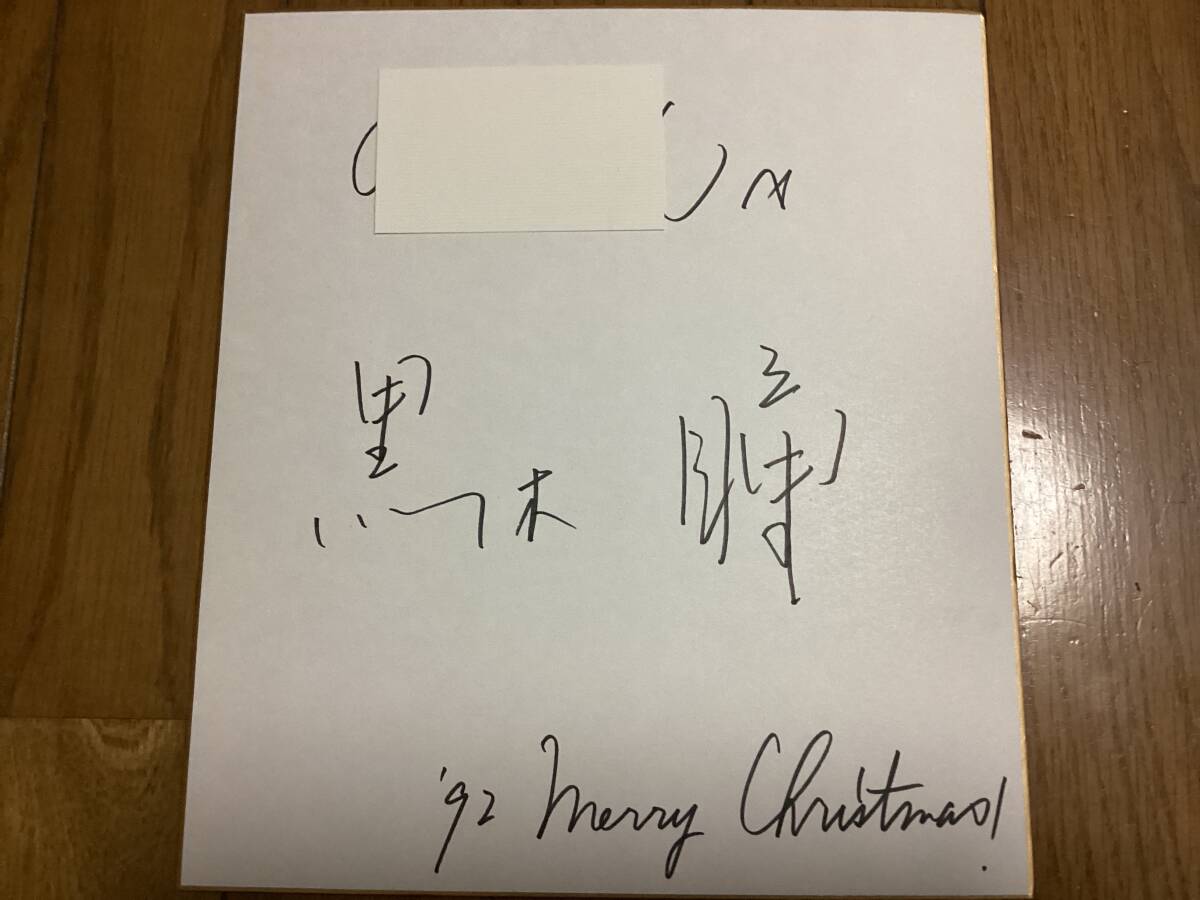 黒木 瞳
'92 Merry Christmas!